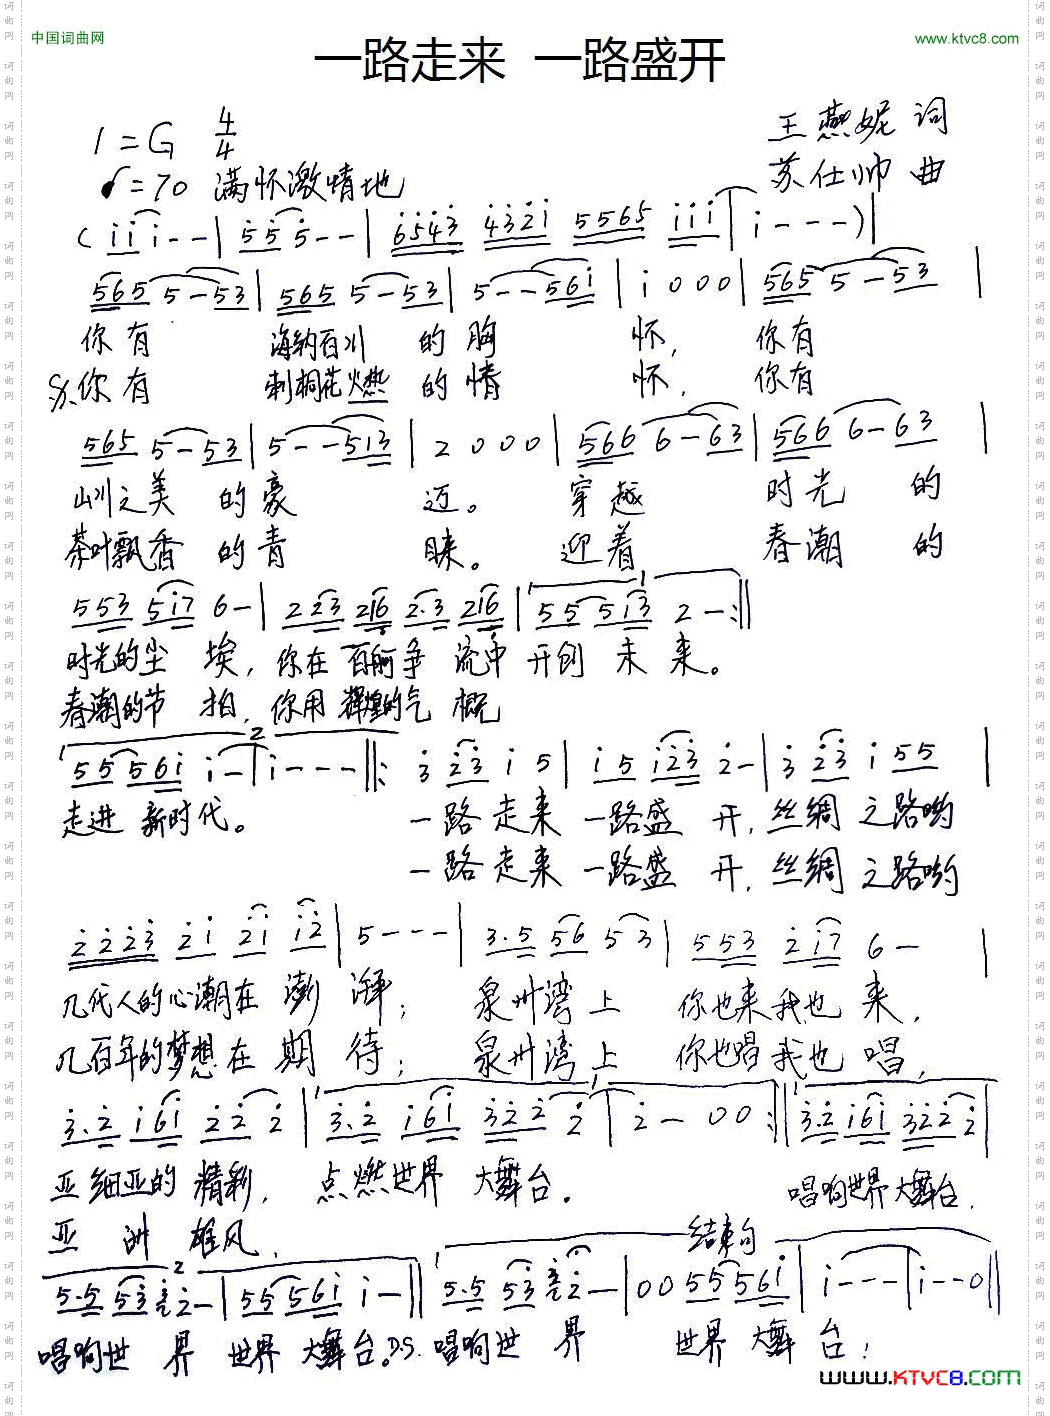 中国词曲网
www.ktvc8.com
一路走来 一路盛开
1=G 4/4
王燕妮 词
♩=70 满怀激情地
苏仕帅 曲
( i i i - - | 5 5 5 - - | 6 5 4 3 4 3 2 i 5 5 6 5 i i i | i - - - ) |
5 6 5 5 - 5 3 | 5 6 5 5 - 5 3 | 5 - - 5 6 i | i 0 0 0 | 5 6 5 5 - 5 3 |
你有 海纳百川 的胸 怀, 你有
你有 刺桐花燃 的情 怀, 你有
5 6 5 5 - 5 3 | 5 - - 5 1 3 | 2 0 0 0 | 5 6 6 6 - 6 3 | 5 6 6 6 - 6 3 |
山川之美 的豪 迈。 穿越 时光 的
茶叶飘香 的青 睐。 迎着 春潮 的
5 5 3 5 i 7 6 - | 2 2 3 2 1 6 2 · 3 2 1 6 | 5 5 5 i 3 2 - :||
时光的尘 埃, 你在 百舸争 流中 开创 未 来。
春潮的节 拍, 你用 辉煌的气 概
5 5 5 6 i i - | i - - - ||: 3 2 3 i 5 | i 5 i 2 3 2 - | 3 2 3 i 5 5 |
走进 新时代。 一 路 走 来 一路盛 开, 丝绸 之路哟
一 路 走 来 一路盛 开, 丝绸 之路哟
2 2 2 3 2 i 2 i i 2 | 5 - - - | 3 · 5 5 6 5 3 | 5 5 3 2 i 7 6 - |
几代人的心潮在 澎 湃; 泉州湾上 你也来我也 来,
几百年的梦想在 期 待; 泉州湾上 你也唱我也 唱,
3 · 2 i 6 i 2 2 2 | 3 · 2 i 6 i 3 2 2 2 | 2 - 0 0 :|| 3 · 2 i 6 i 3 2 2 2 |
亚细亚的 精彩, 点燃世界 大舞台。 唱响世界大舞台,
亚 洲 雄风,
结束句
5 · 5 5 3 2 - | 5 5 5 6 i i - || 5 · 5 5 3 2 - - | 0 0 5 5 5 6 i | i - - - | i - - 0 ||
唱响世 界 世界 大舞台。D.S. 唱响世 界 世界 大舞 台!
www.KTVC8.com